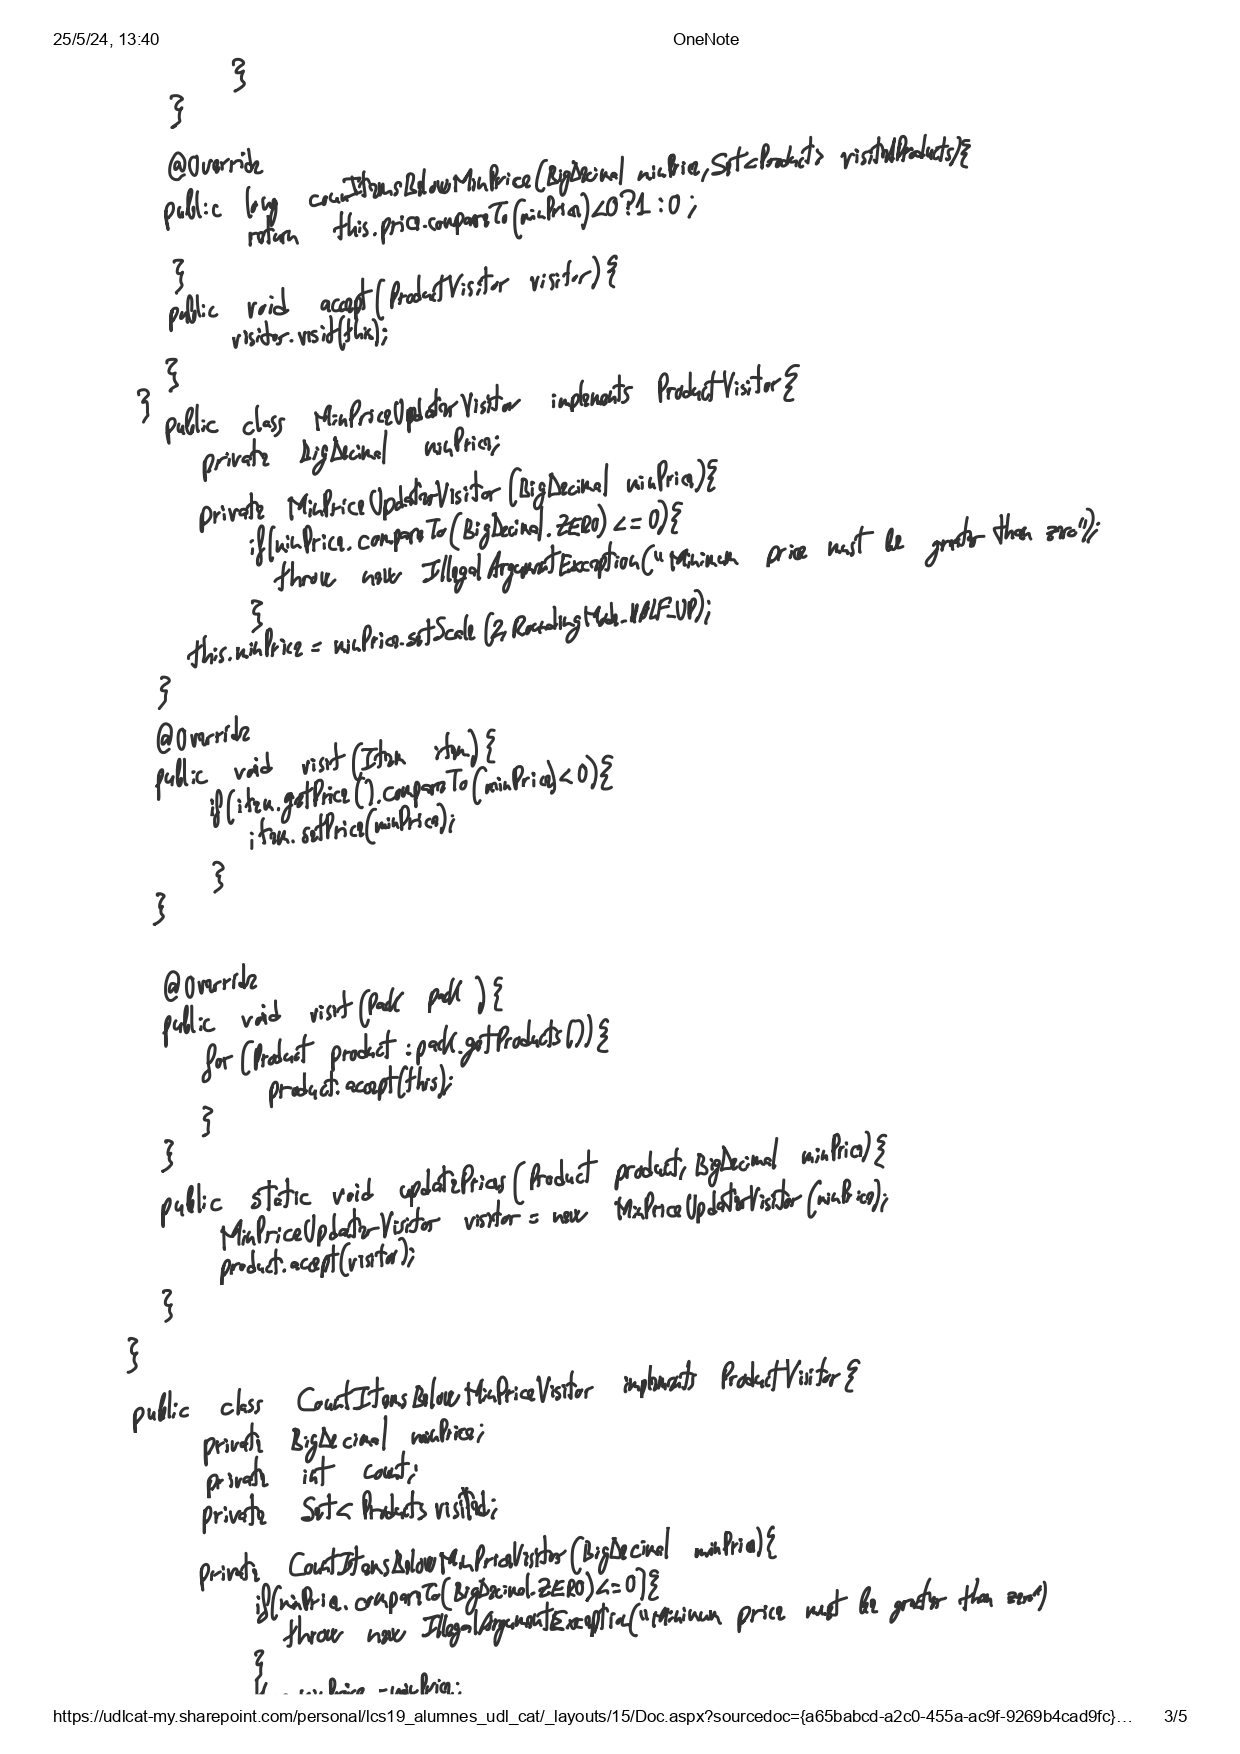 25/5/24, 13:40
OneNote
}
}
@Override
public long countItemsBelowMinPrice(BigDecimal minPrice, Set<Product> visitedProducts){
return this.price.compareTo(minPrice)<0?1:0;
}
public void accept(ProductVisitor visitor){
visitor.visit(this);
}
}
public class MinPriceUpdaterVisitor implements ProductVisitor{
private BigDecimal minPrice;
private MinPriceUpdaterVisitor(BigDecimal minPrice){
if(minPrice.compareTo(BigDecimal.ZERO)<=0){
throw new IllegalArgumentException("Minimum price must be greater than zero");
}
this.minPrice = minPrice.setScale(2, RoundingMode.HALF_UP);
}
@Override
public void visit(Item item){
if(item.getPrice().compareTo(minPrice)<0){
item.setPrice(minPrice);
}
}
@Override
public void visit(Pack pack){
for(Product product : pack.getProducts()){
product.accept(this);
}
}
public static void updatePrices(Product product, BigDecimal minPrice){
MinPriceUpdaterVisitor visitor = new MinPriceUpdaterVisitor(minPrice);
product.accept(visitor);
}
}
public class CountItemsBelowMinPriceVisitor implements ProductVisitor{
private BigDecimal minPrice;
private int count;
private Set<Product> visited;
private CountItemsBelowMinPriceVisitor(BigDecimal minPrice){
if(minPrice.compareTo(BigDecimal.ZERO)<=0){
throw new IllegalArgumentException("Minimum price must be greater than zero")
}
https://udlcat-my.sharepoint.com/personal/lcs19_alumnes_udl_cat/_layouts/15/Doc.aspx?sourcedoc={a65babcd-a2c0-455a-ac9f-9269b4cad9fc}…
3/5